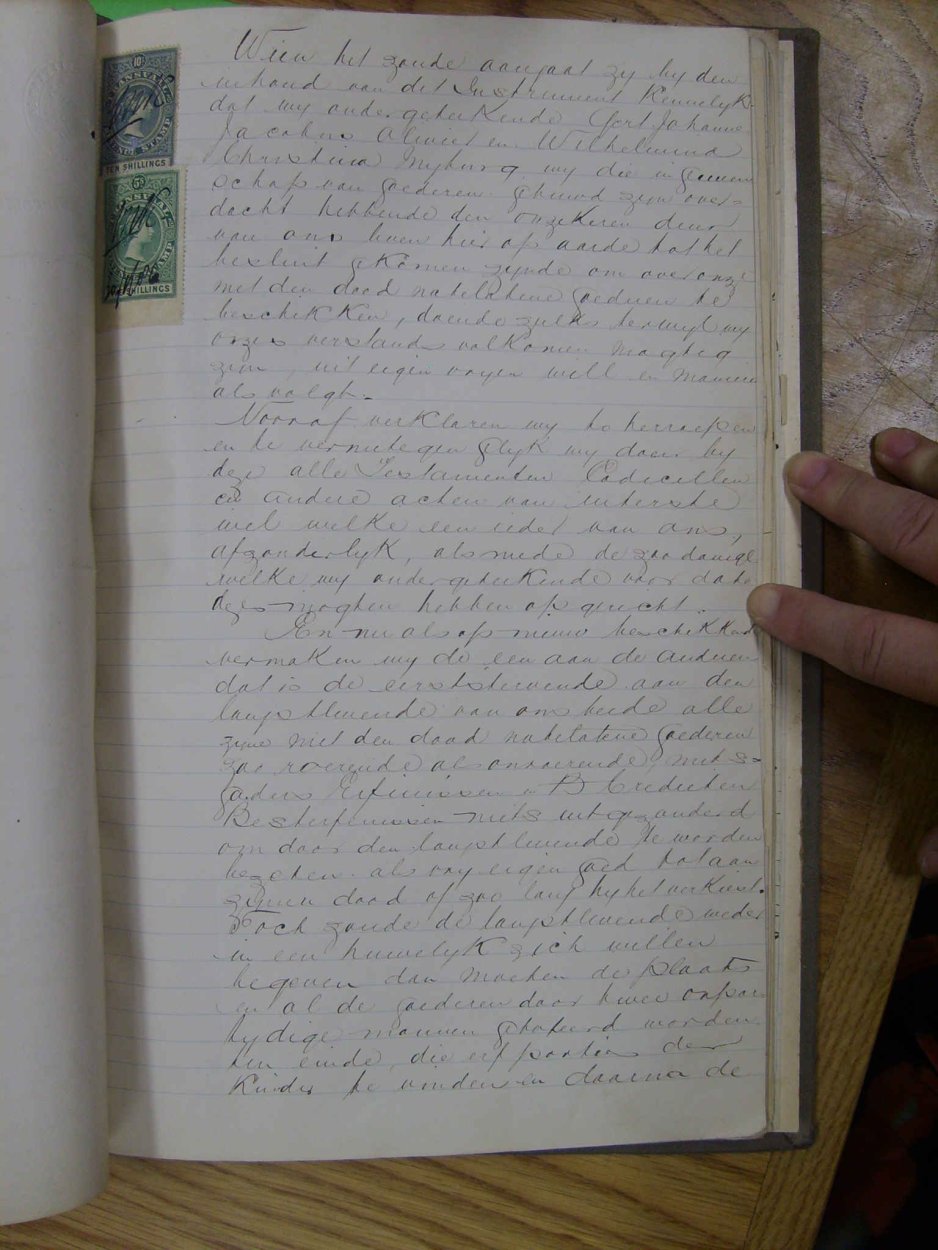 Wien het zoude aangaat zy by den
inhoud van dit Instrument Kennelyk
dat wy ondergeteekende Gert Johannes
Jacobus Olivier en Wilhelmina
Christina Myburg, wy die in gemeen
schap van goederen gehuwd zyn over=
dacht hebbende den onzekeren duur
van ons leven hier op aarde tot het
besluit gekomen zynde om over onze
met den dood natelatene goederen te
beschikken, doende zulks terwyl wy
onzes verstands volkomen magtig
zyn, uit eigen vryen will en manieren
als volgt.
Vooraf verklaren wy te herroepen
en te vernietegen gelyk wy doen by
deze alle Testamenten Codicillen
en andere acten van uiterste
wil welke een ieder van ons,
afzonderlyk, alsmede de zoodanige
welke wy ondergeteekende voor date
dezes mogten hebben op gericht.
En nu als op nieuw beschikkend
vermaken wy de een aan de andere
dat is de eerststervende aan den
langstlevende van ons beide alle
zyne met den dood natelatene goederen
zoo roerende als onroerende, mits=
gaders Erfenissen Crediten
Besterfenissen niets uitgezonderd
om door den langstlevende te worden
bezeten als vry eigen goed tot aan
zynen dood of zoo lang hy het verkiest.
Toch zoude de langstlevende weder
in een huwelyk zich willen
begeven dan moeten de plaats
en al de goederen door twee onpar
tydige mannen getaxeerd worden
ten einde, die erfportien der
Kinders te vinden en daarna de
TRANSVAAL
10/-
TEN SHILLINGS
TRANSVAAL
5/-
SHILLINGS